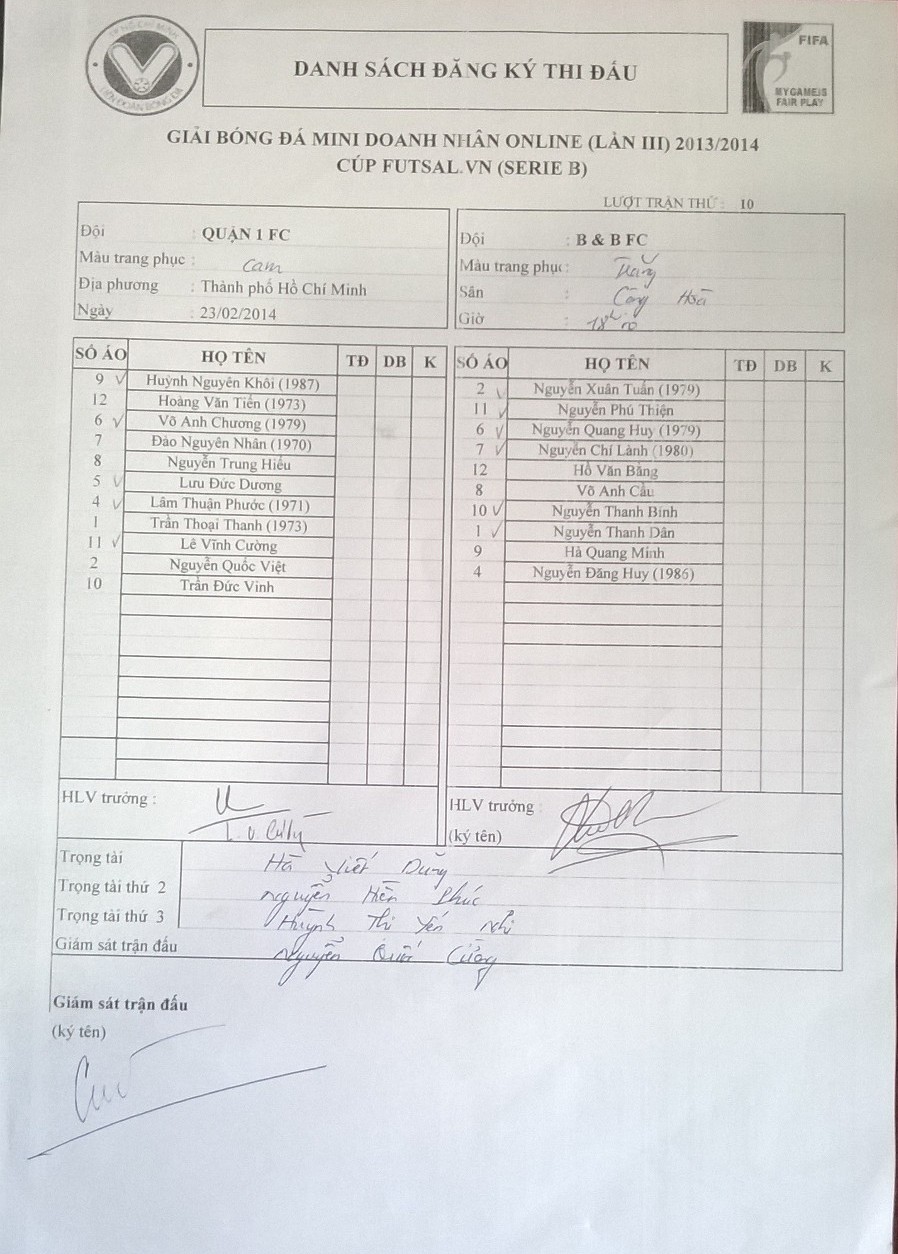 TP HỒ CHÍ MINH
LIÊN ĐOÀN BÓNG ĐÁ
DANH SÁCH ĐĂNG KÝ THI ĐẤU
FIFA
MY GAME IS
FAIR PLAY
GIẢI BÓNG ĐÁ MINI DOANH NHÂN ONLINE (LẦN III) 2013/2014
CÚP FUTSAL.VN (SERIE B)
LƯỢT TRẬN THỨ : 10
Đội : QUẬN 1 FC
Màu trang phục : Cam
Địa phương : Thành phố Hồ Chí Minh
Ngày : 23/02/2014
Đội : B & B FC
Màu trang phục : Trắng
Sân : Cộng Hoà
Giờ : 18h10
SỐ ÁO HỌ TÊN TĐ DB K
9 ✓ Huỳnh Nguyên Khôi (1987)
12 Hoàng Văn Tiến (1973)
6 ✓ Võ Anh Chương (1979)
7 Đào Nguyên Nhân (1970)
8 Nguyễn Trung Hiếu
5 ✓ Lưu Đức Dương
4 ✓ Lâm Thuận Phước (1971)
1 Trần Thoại Thanh (1973)
11 ✓ Lê Vĩnh Cường
2 Nguyễn Quốc Việt
10 Trần Đức Vinh
SỐ ÁO HỌ TÊN TĐ DB K
2 ✓ Nguyễn Xuân Tuấn (1979)
11 ✓ Nguyễn Phú Thiện
6 ✓ Nguyễn Quang Huy (1979)
7 ✓ Nguyễn Chí Lành (1980)
12 Hồ Văn Bằng
8 Võ Anh Cầu
10 ✓ Nguyễn Thanh Bình
1 ✓ Nguyễn Thanh Dân
9 Hà Quang Minh
4 Nguyễn Đăng Huy (1986)
HLV trưởng :
HLV trưởng :
(ký tên)
Trọng tài Hà Viết Dũng
Trọng tài thứ 2 Nguyễn Hiền Phúc
Trọng tài thứ 3 Huỳnh Thị Yến Nhi
Giám sát trận đấu Nguyễn Quốc Cường
Giám sát trận đấu
(ký tên)